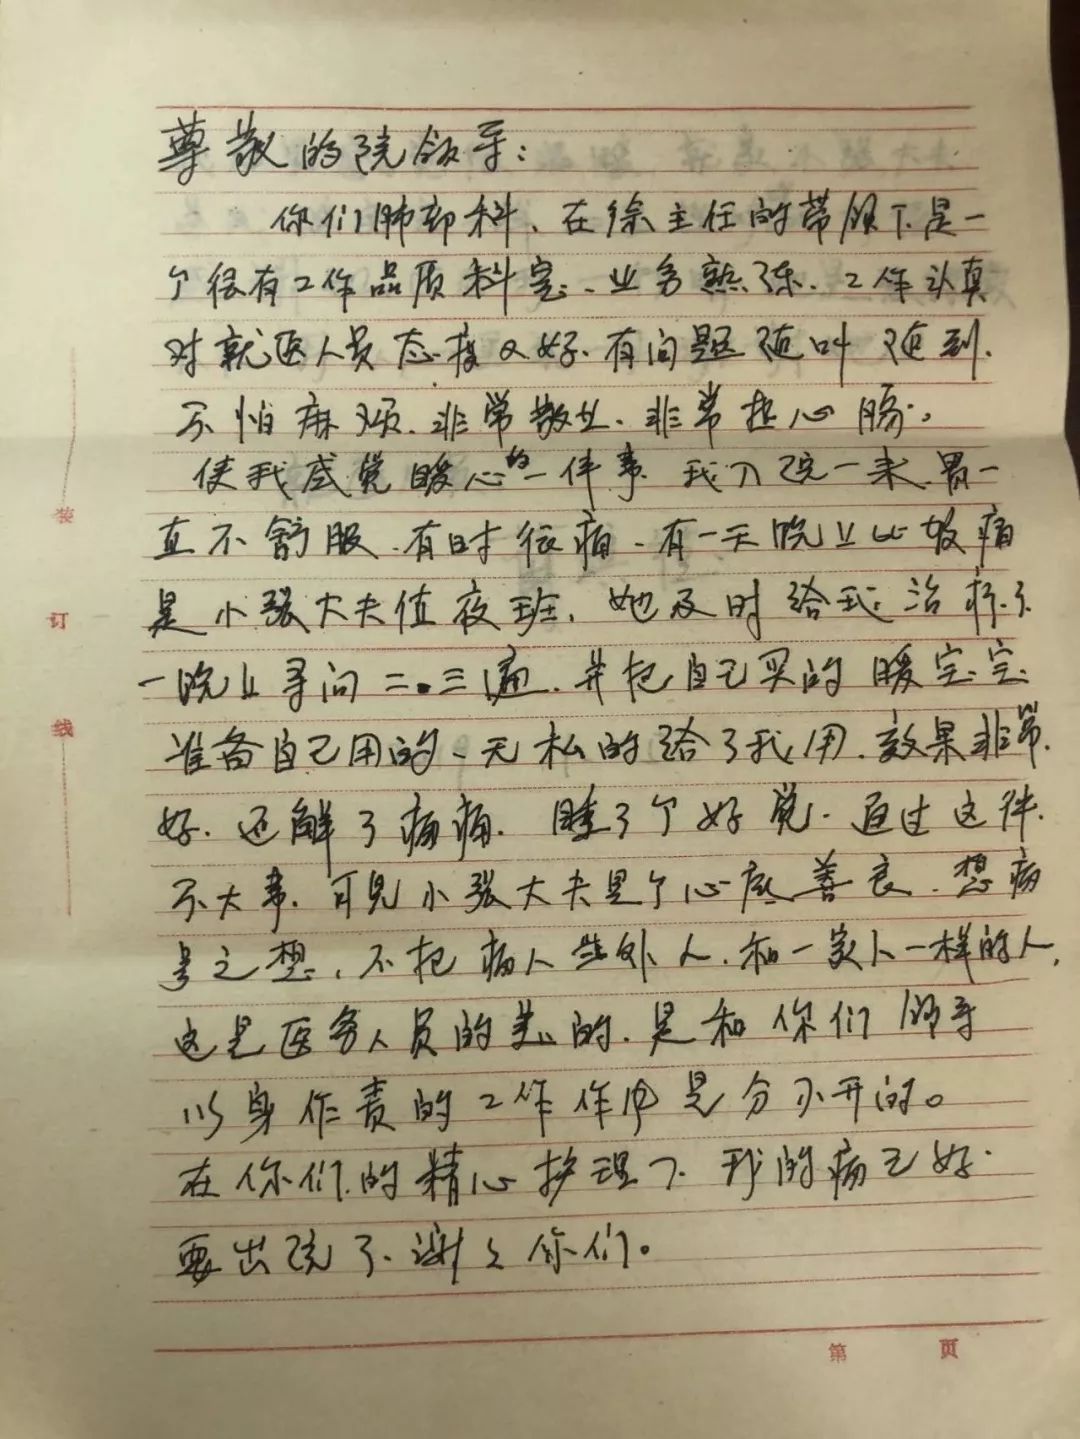 尊敬的院领导：
你们肺部科、在徐主任的带领下是一
个很有工作品质科室、业务熟练、工作认真
对就医人员态度又好、有问题随叫随到、
不怕麻烦、非常敬业、非常热心肠。
使我感觉暖心的一件事、我入院一来、胃一
直不舒服、有时很痛、有一天晚上比较痛
是小张大夫值夜班、她及时给我治疗了、
一晚上寻问二、三遍、并把自己买的暖宝宝
准备自己用的、无私的给了我用、效果非常
好、还解了病痛、睡了个好觉、通过这件
不大事、可见小张大夫是个心底善良、想病
号之想、不把病人当外人、和一家人一样的人、
这是医务人员的美的、是和你们领导
以身作责的工作作风是分不开的。
在你们的精心护理下、我的病已好
要出院了、谢谢你们。
装
订
线
第 页